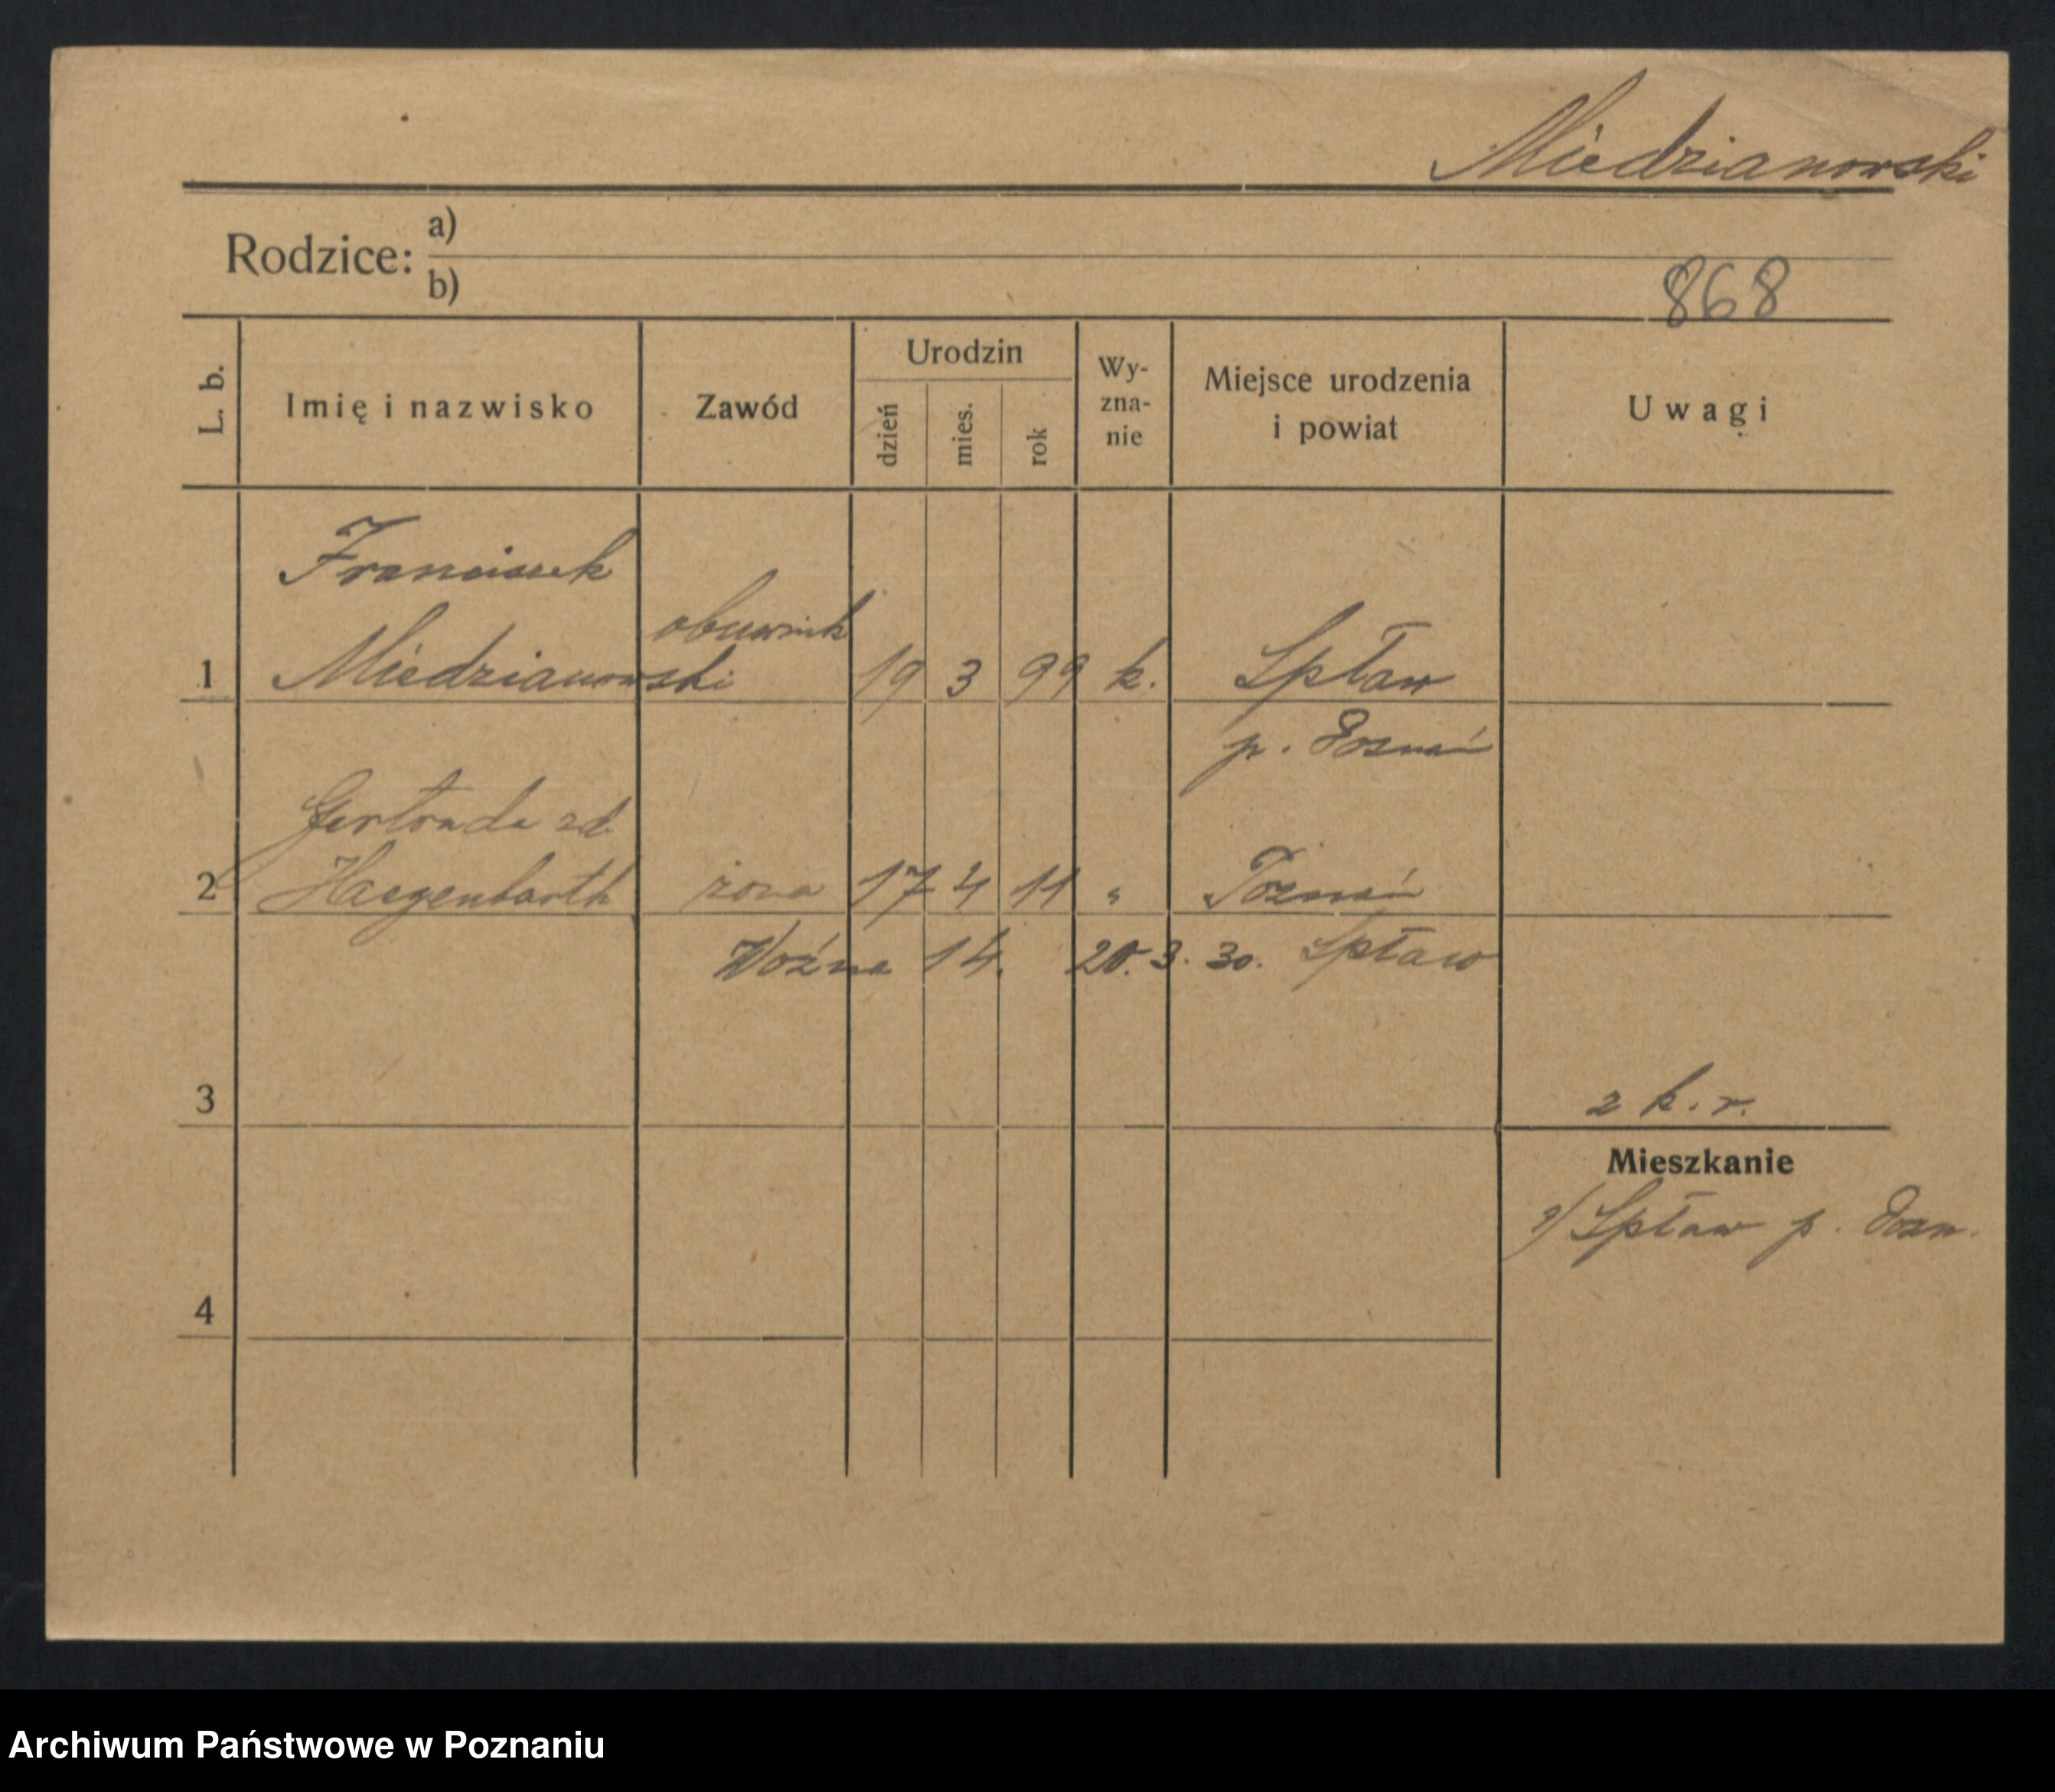 Miedzianowski
Rodzice: a)
b)
868
L. b.
Imię i nazwisko
Zawód
Urodzin
dzień
mies.
rok
Wy-
zna-
nie
Miejsce urodzenia
i powiat
Uwagi
Franciszek
1 Miedzianowski obuwnik 19 3 99 k. Spław
p. Poznań
Gertruda zd.
2 Haegenbarth żona 17 4 11 " Poznań
Woźna 14. 20. 3. 30. Spław
3
2 k. r.
Mieszkanie
Spław p. Pozn.
4
Archiwum Państwowe w Poznaniu